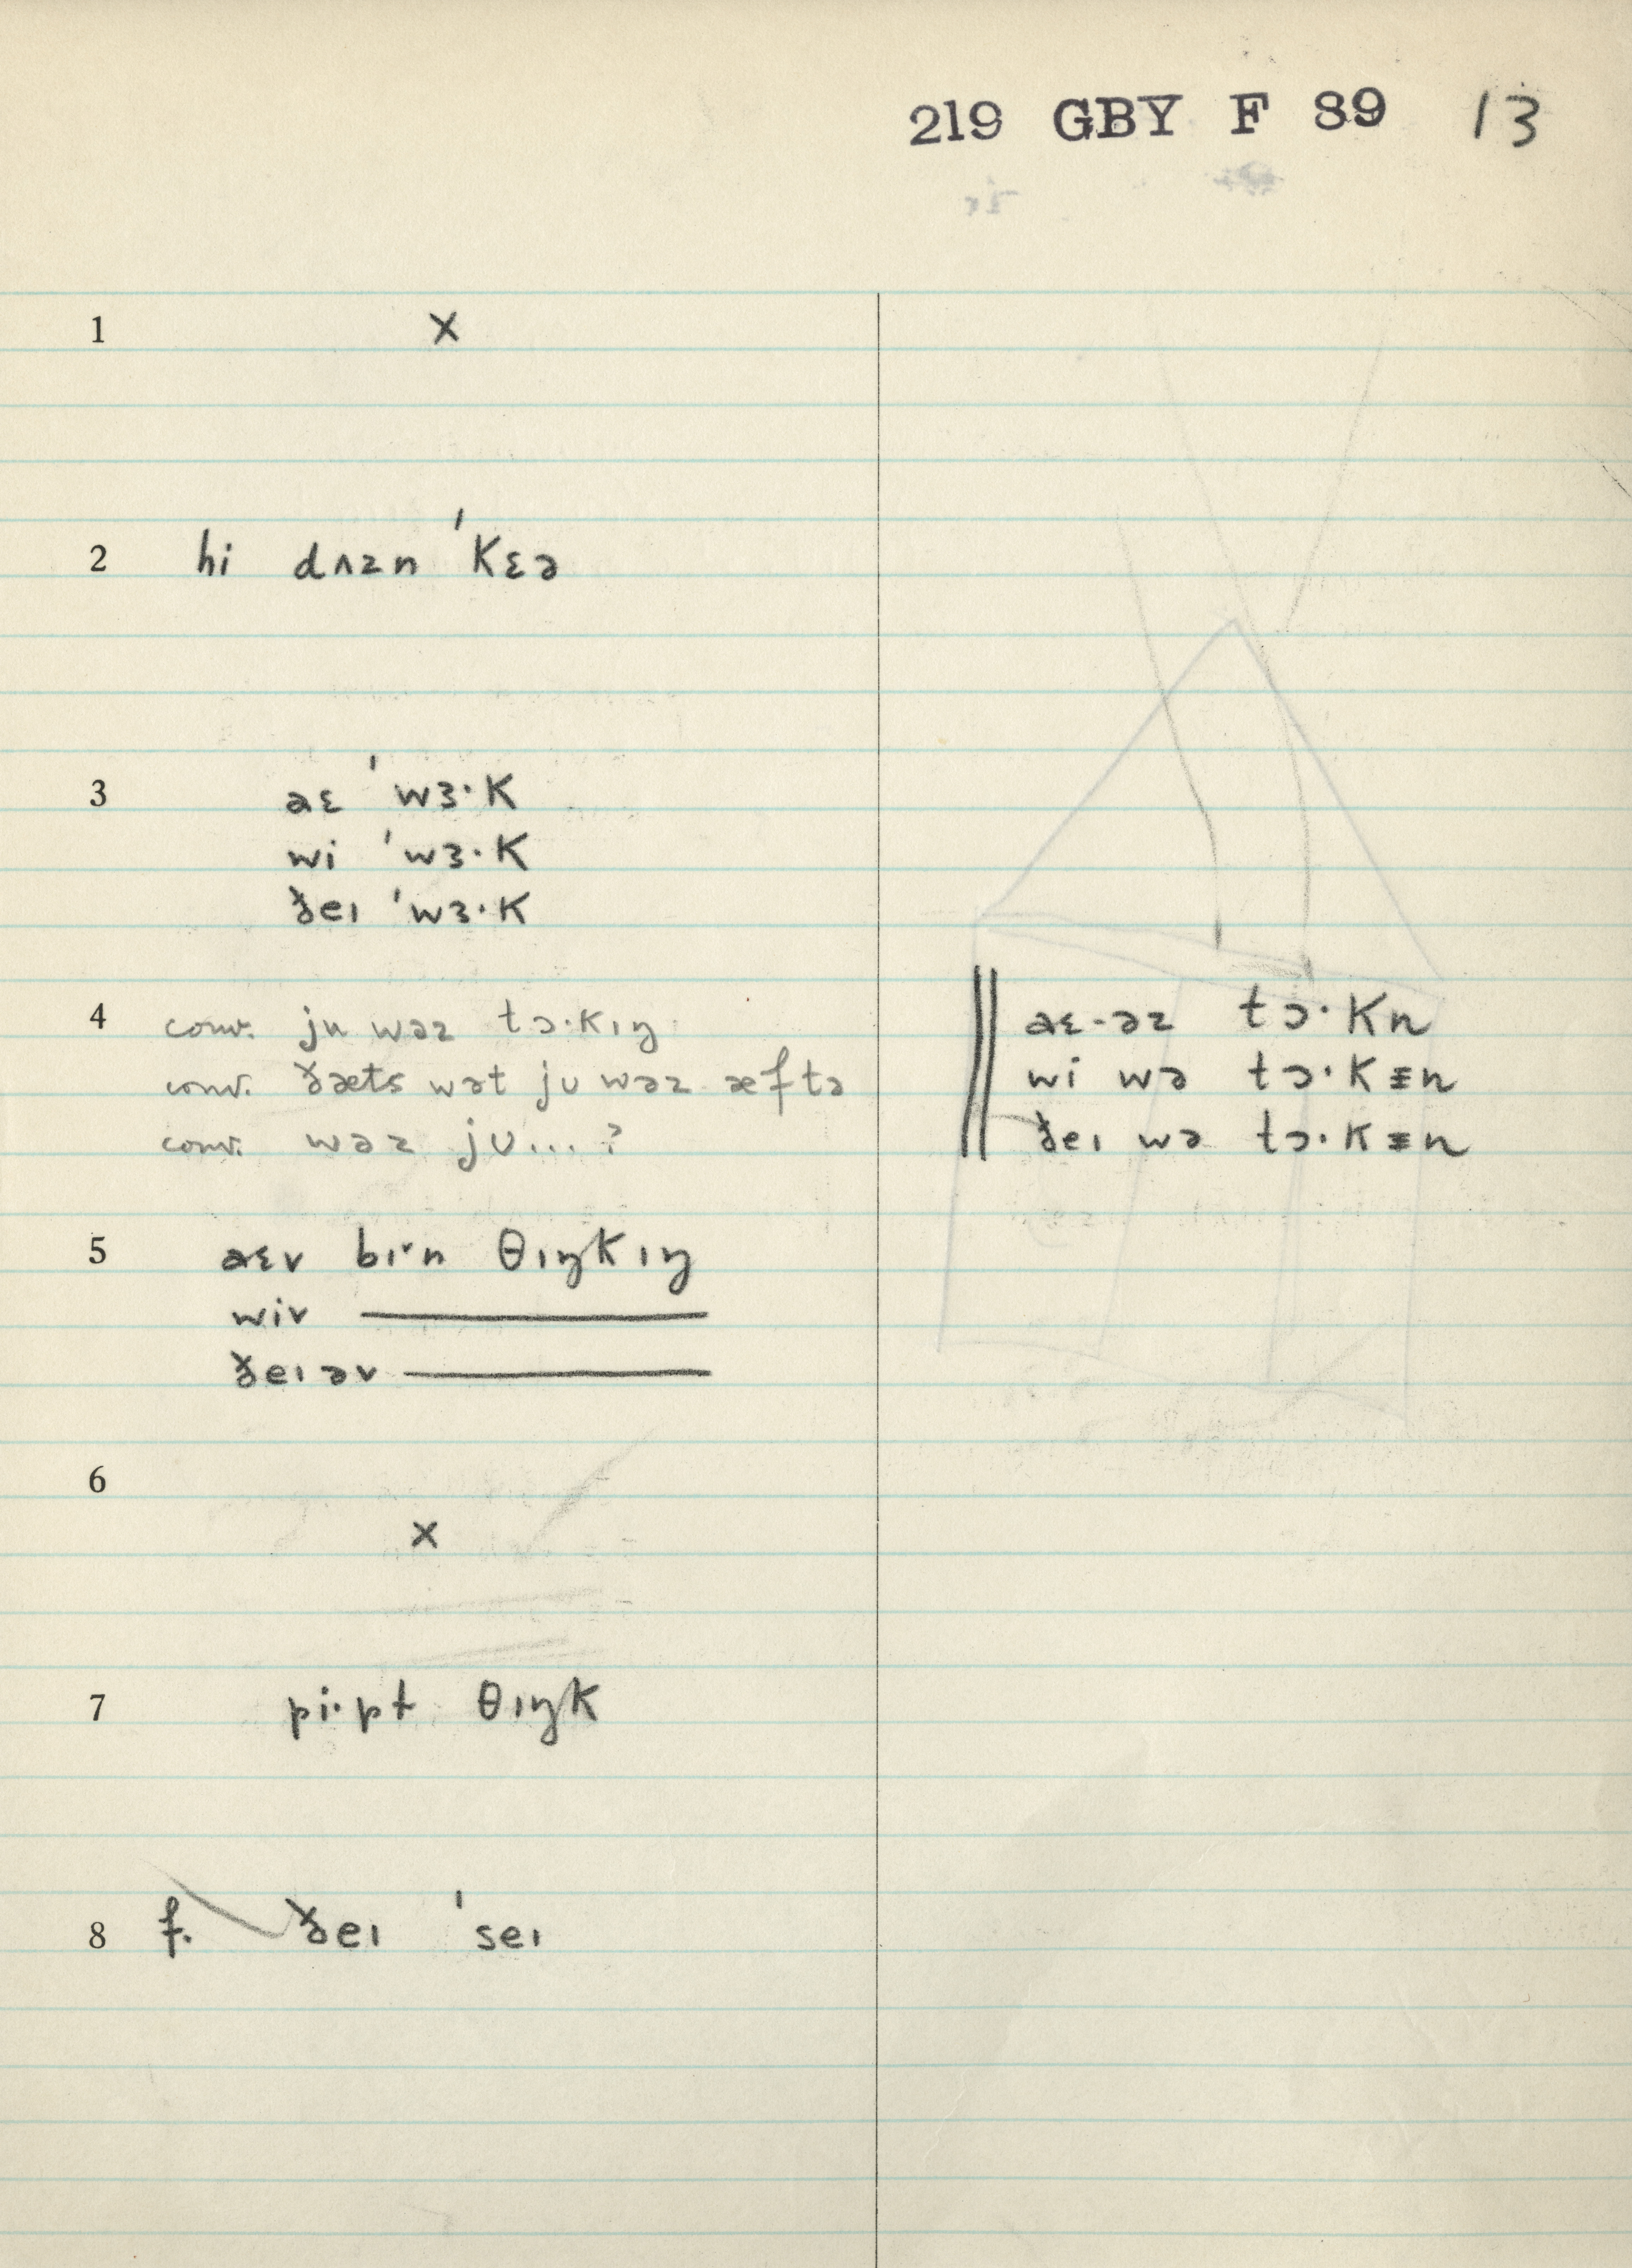 219 GBY F 89 13
1 x
2 hi dʌzn ˈkɛə
3 aɛ ˈwɜ·k
wi ˈwɜ·k
ðeɪ ˈwɜ·k
4 conv. ju wəz tɔ·kɪŋ
conv. ðæts wət jʊ wəz æftə
conv. wəz jʊ...?
aɛ-əz tɔ·kn
wi wə tɔ·kɪn
ðeɪ wə tɔ·kɪn
5 aɛv bɪ·n θɪŋkɪŋ
wiv ———
ðeɪəv ———
6 x
7 pi·pt θɪŋk
8 f. ðeɪ ˈseɪ